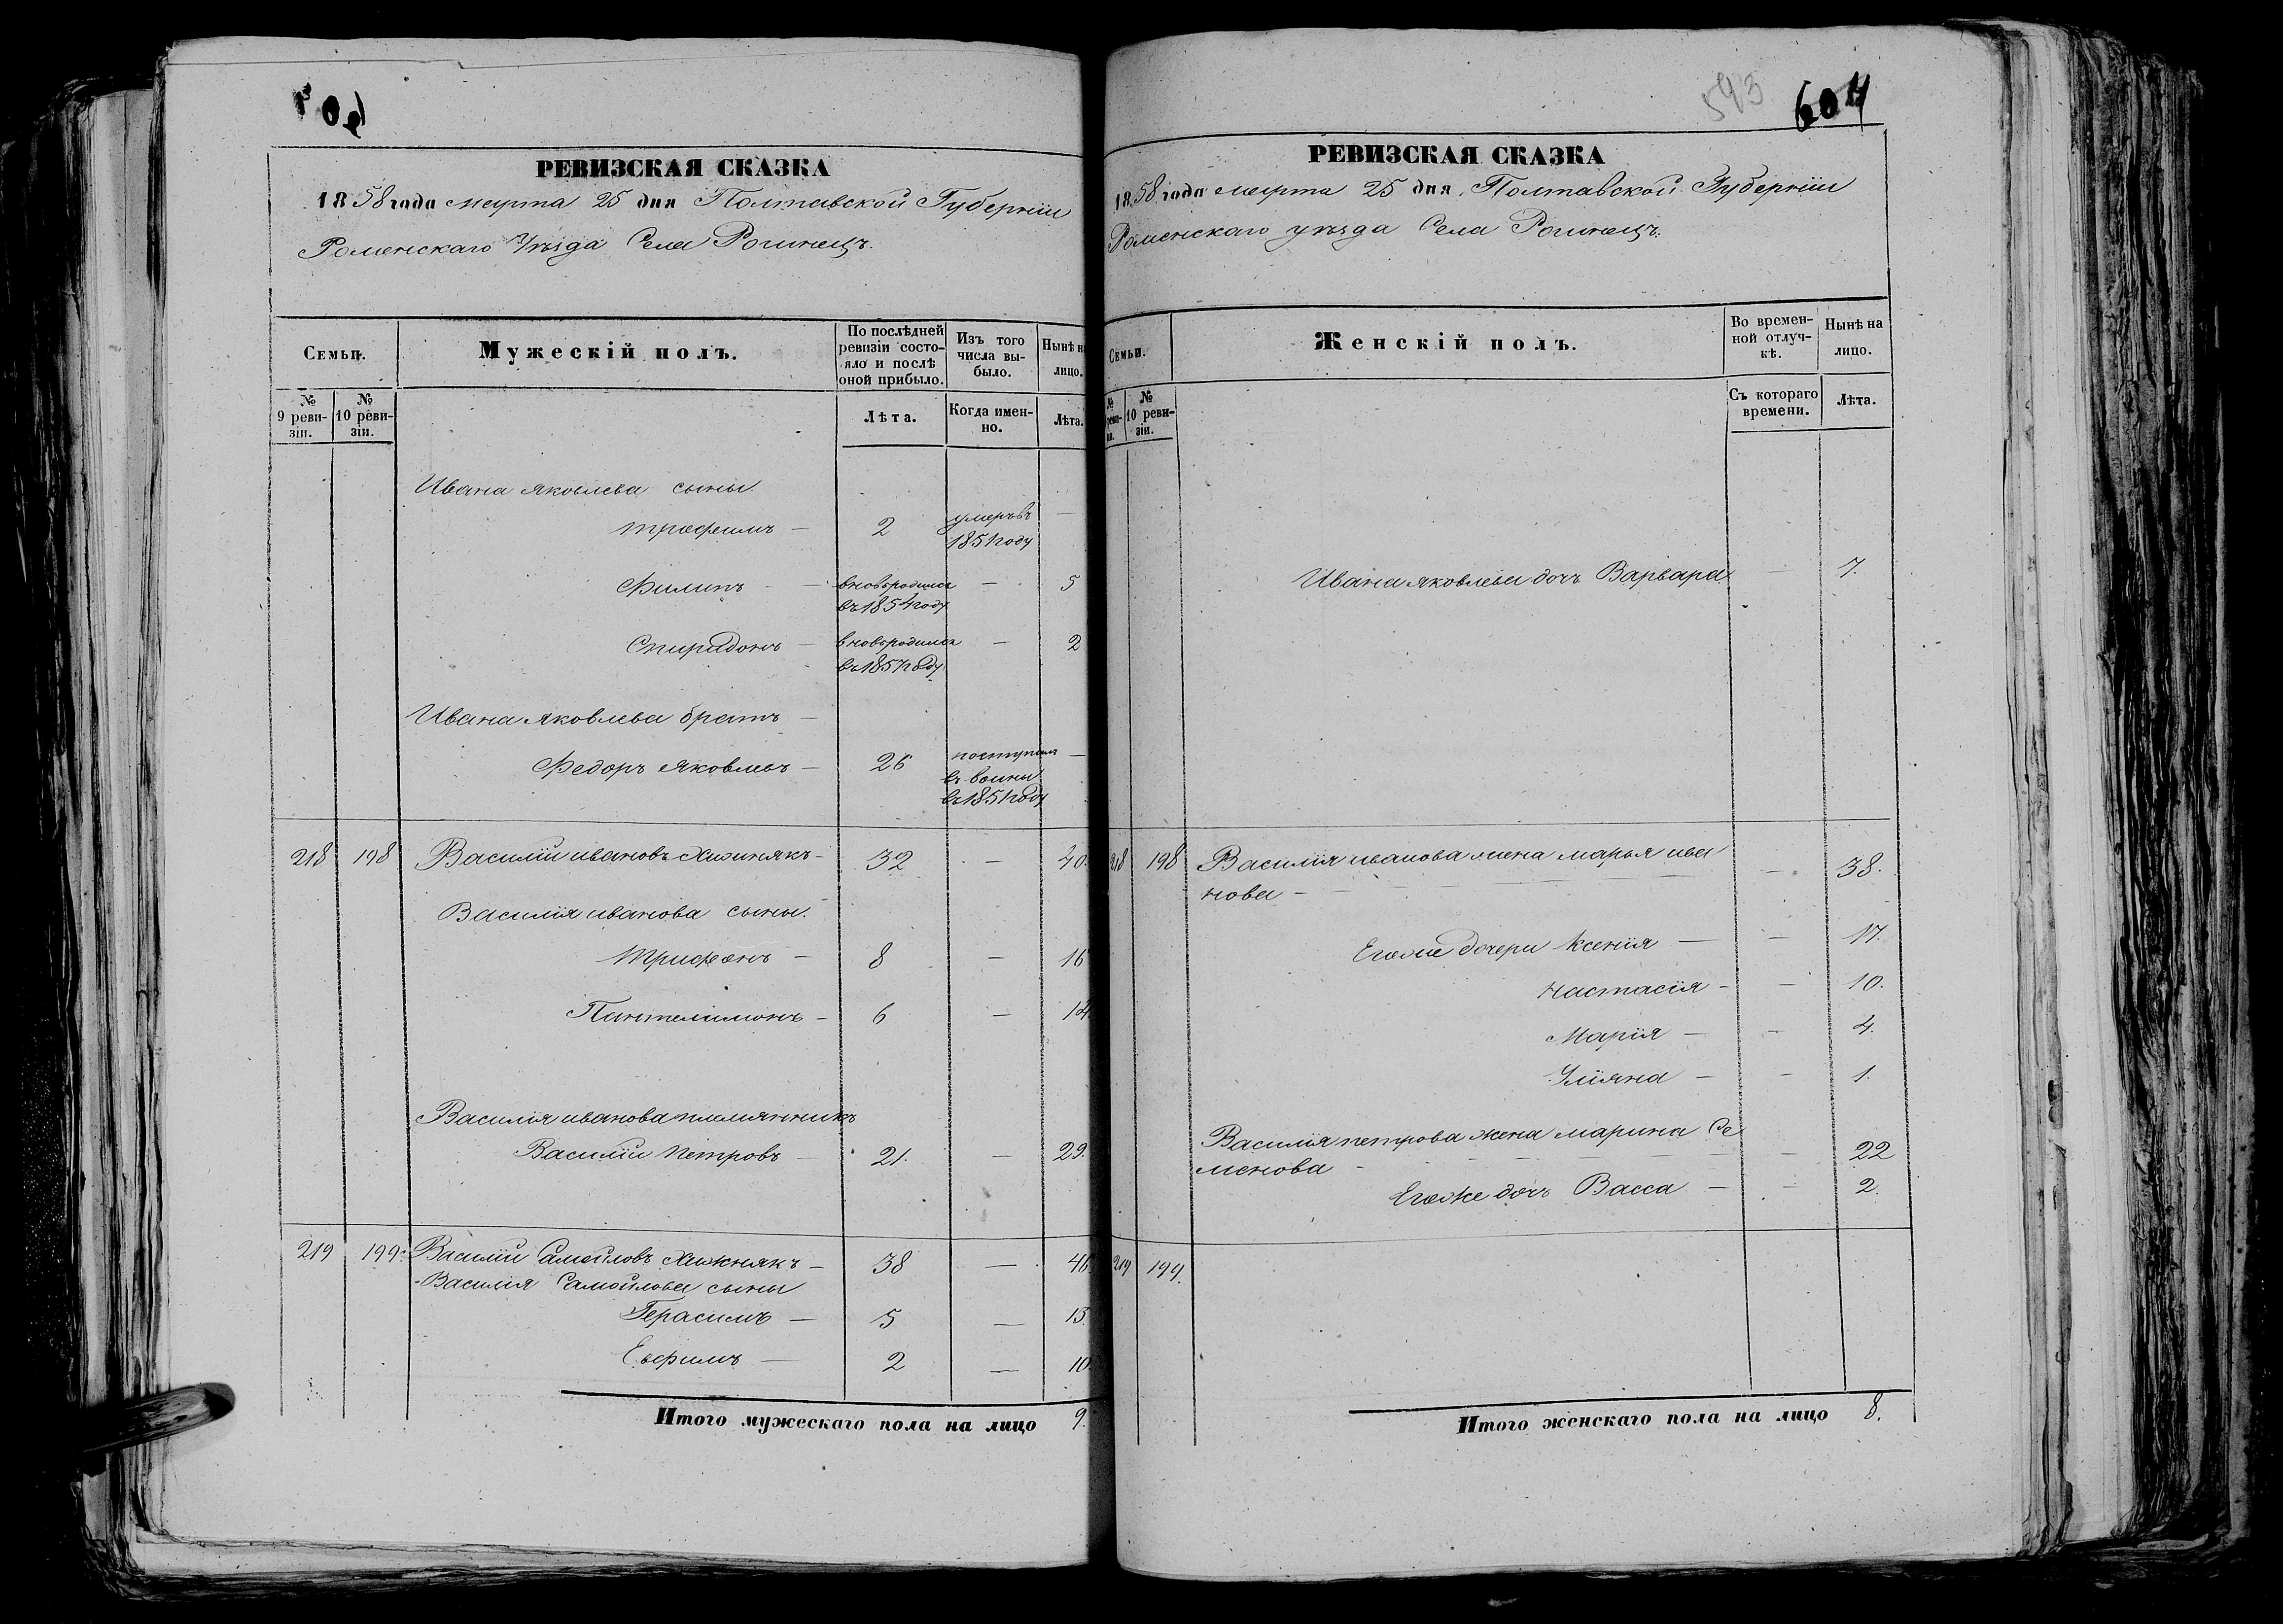 593
604
РЕВИЗСКАЯ СКАЗКА
1858 года марта 25 дня Полтавской Губерніи
Роменскаго Уѣзда Села Рогинецъ.
Семьи.
Мужескій полъ.
По послѣдней ревизіи состояло и послѣ оной прибыло.
Изъ того числа выбыло.
Нынѣ на лицо.
№ 9 ревизіи.
№ 10 ревизіи.
Лѣта.
Когда именно.
Лѣта.
Ивана Яковлева сыны
Трофимъ — 2 умеръ въ 1851 году —
Филипъ — вновьродился въ 1854 году — 5
Спиридонъ — вновьродился въ 1857 году — 2
Ивана Яковлева братъ —
Федоръ Яковлевъ — 26 поступилъ въ воины въ 1851 году —
218 198 Василій ивановъ Хижнякъ — 32 — 40
Василія иванова сыны.
Трифонъ — 8 — 16
Пантелимонъ — 6 — 14
Василія иванова племянникъ
Василій Петровъ — 21. — 29.
219 199. Василій Самойловъ Хижнякъ — 38 — 46
Василія Самойлова сыны
Герасимъ — 5 — 13.
Евфимъ — 2 — 10
Итого мужескаго пола на лицо 9.
РЕВИЗСКАЯ СКАЗКА
1858 года марта 25 дня Полтавской Губерніи
Роменскаго уѣзда Села Рогинецъ.
Семьи.
Женскій полъ.
Во временной отлучкѣ.
Нынѣ на лицо.
№ 10 ревизіи.
Съ котораго времени.
Лѣта.
Ивана Яковлева дочь Варвара — 7.
218 198 Василія иванова жена марья ива
нова — — 38.
Егоже дочери Ксенія — — 17.
Настасія — — 10.
Марія — — 4.
Уліяна — — 1.
Василія петрова жена марина Се
менова — — 22
Егоже дочь Васса — — 2.
219 199.
Итого женскаго пола на лицо 8.